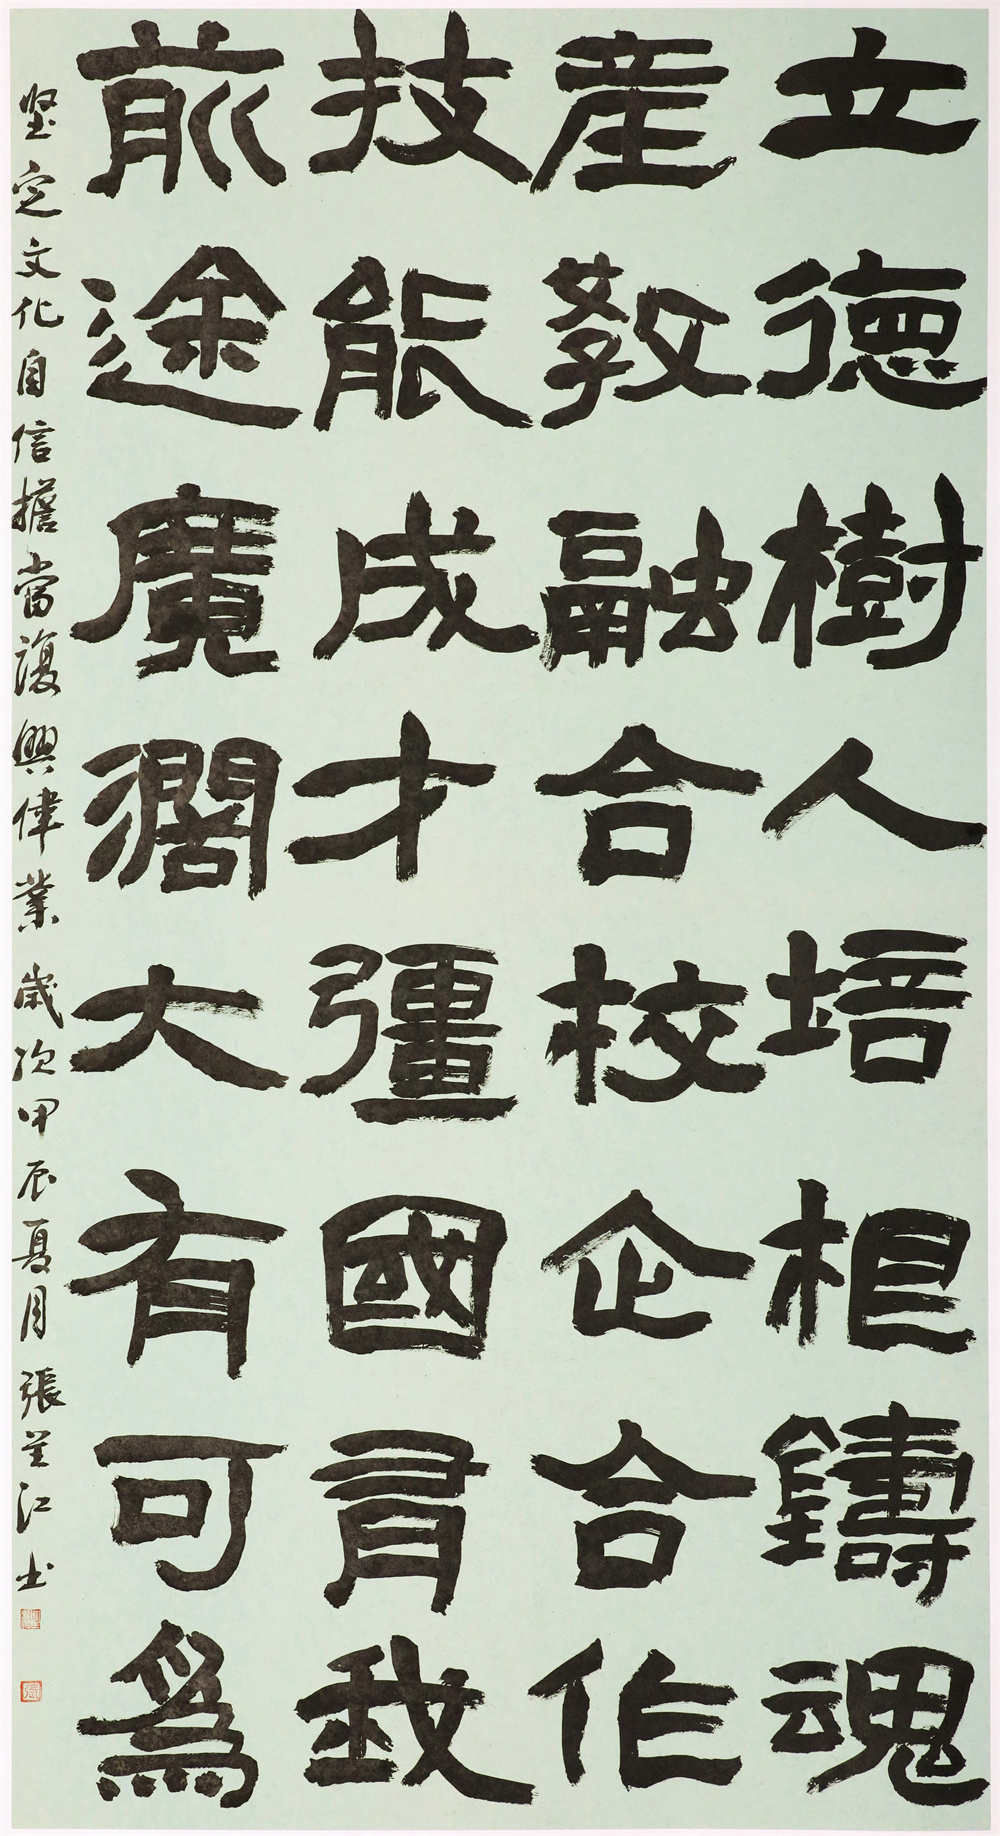 立德樹人培根鑄魂
産教融合校企合作
技能成才彊國有我
前途廣濶大有可爲
坚定文化自信擔當復興偉業歲次甲辰夏月張江书